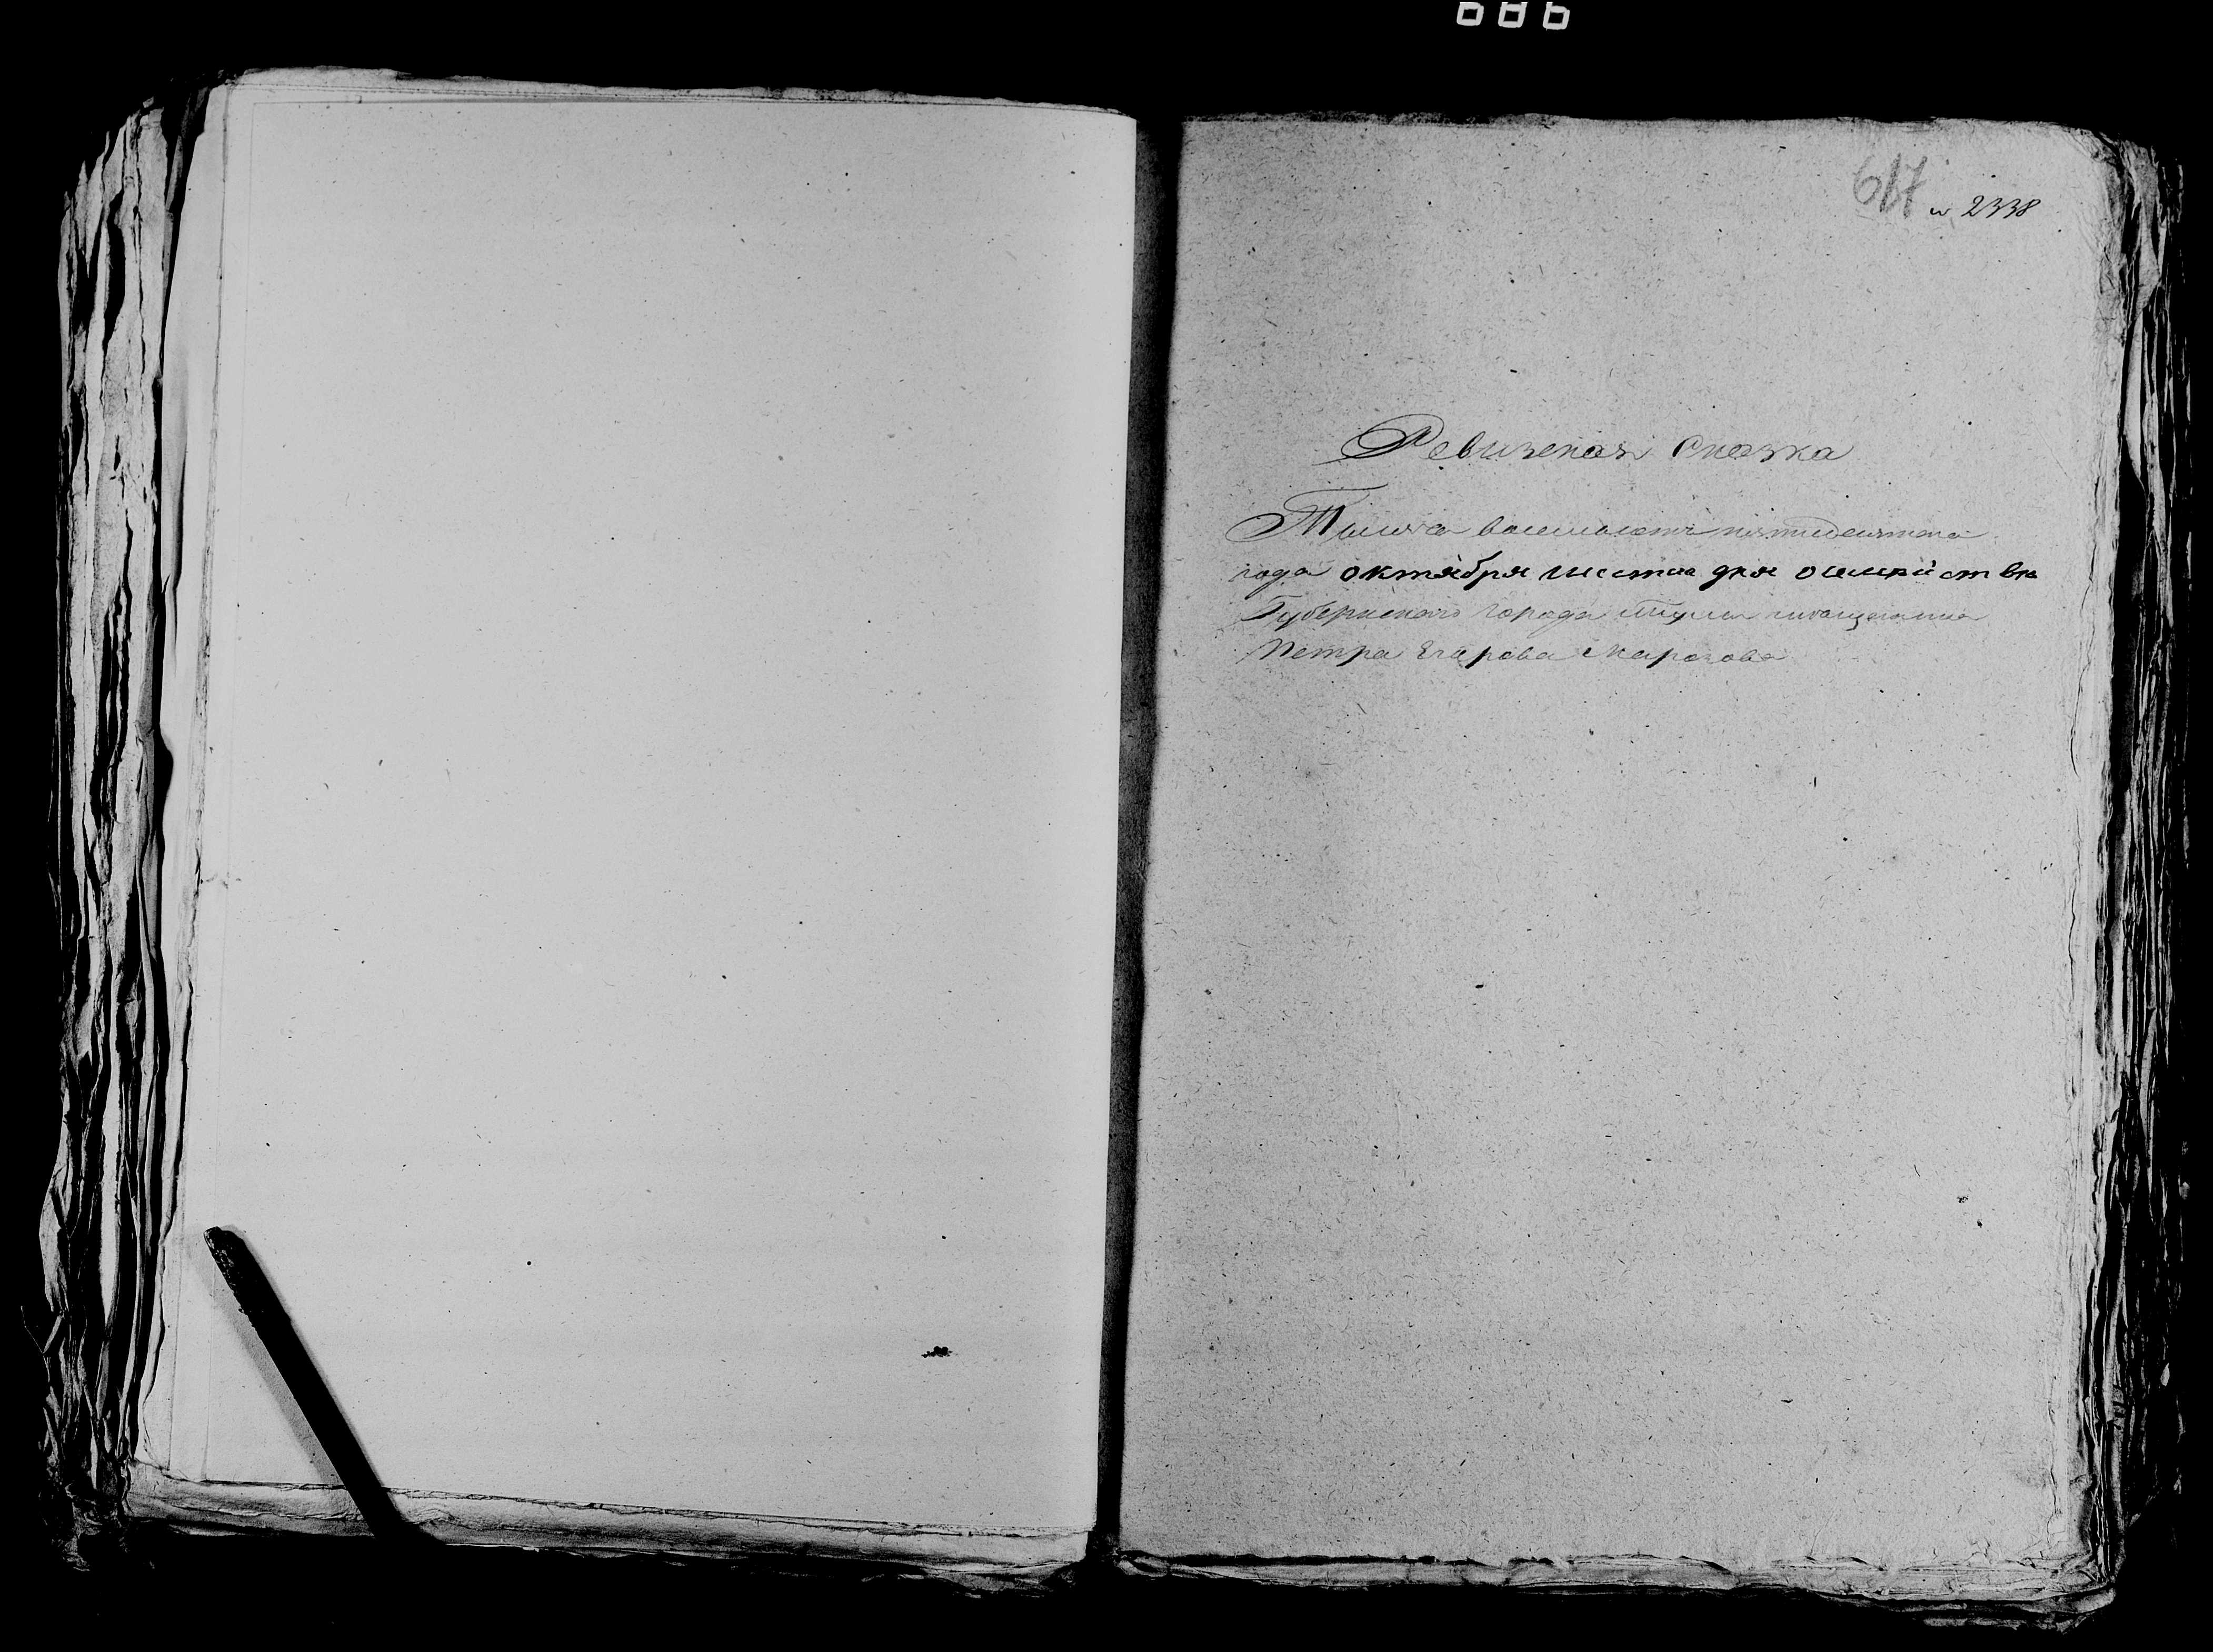 686
617 № 2338
Ревизская Сказка
Тысяча восемьсотъ пятидесятого
года октября шестго дня о семейстъвъ
Губернского города Тулы мещанина
Петра Егарова Марозова